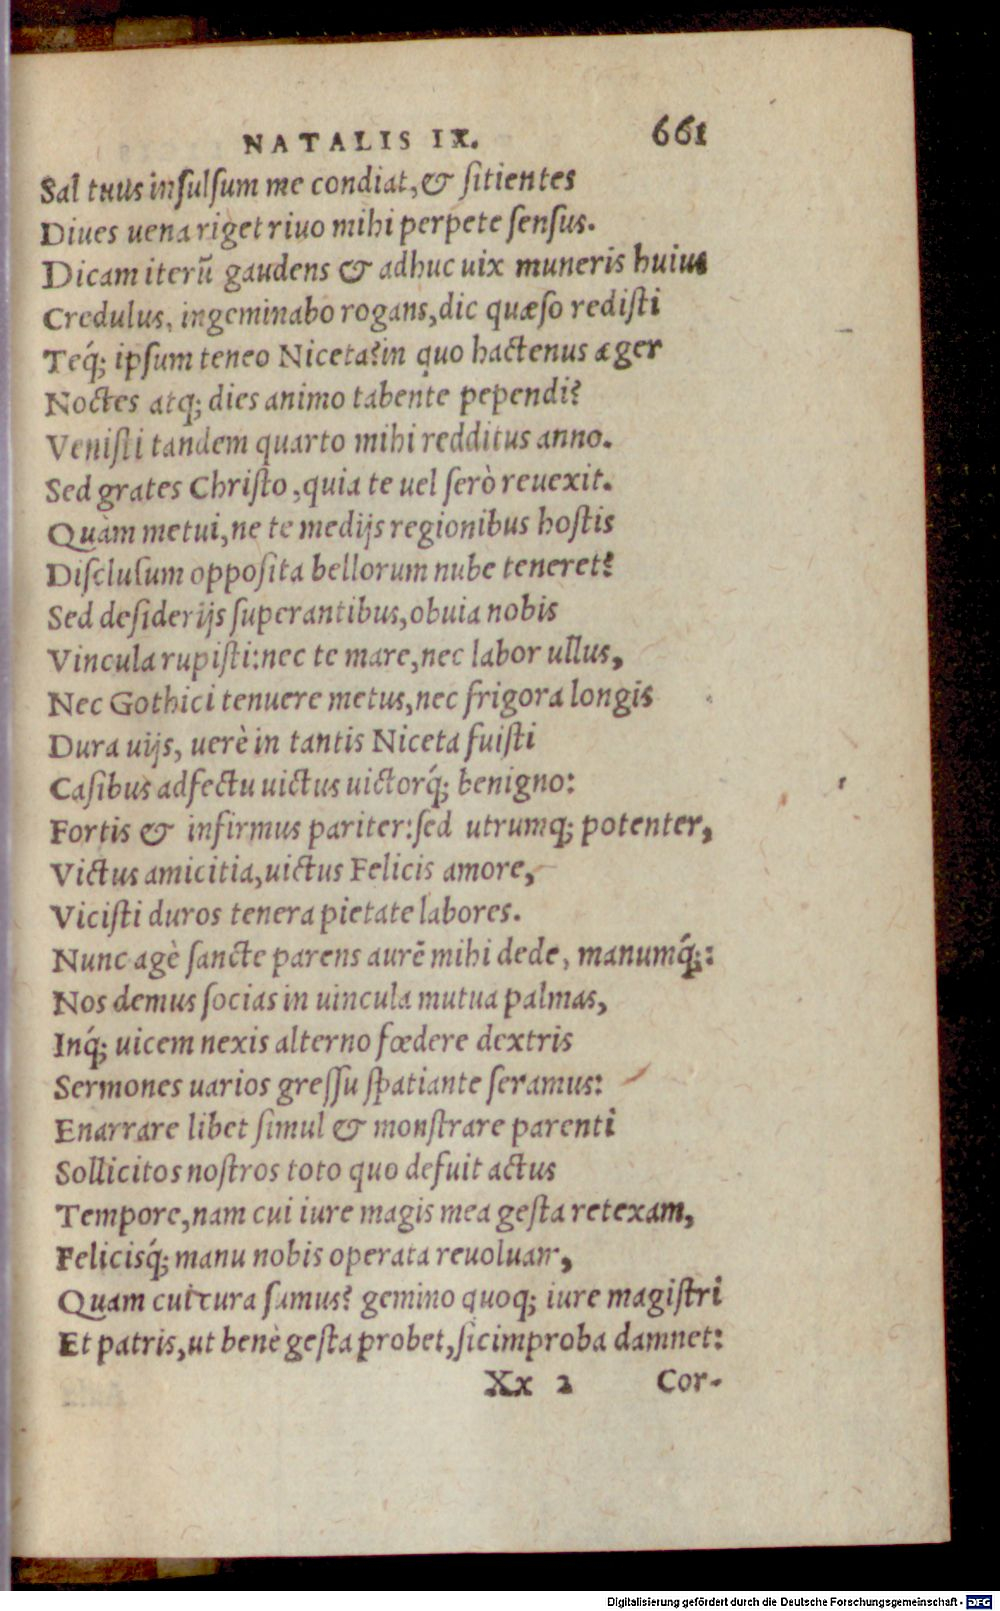 NATALIS IX. 661
Sal tuus inſulſum me condiat, & ſitientes
Diues uena riget riuo mihi perpete ſenſus.
Dicam iterū gaudens & adhuc uix muneris huius
Credulus, ingeminabo rogans, dic quæſo rediſti
Teq́; ipſum teneo Niceta? in quo hactenus æger
Noctes atq; dies animo tabente pependi?
Veniſti tandem quarto mihi redditus anno.
Sed grates Chriſto, quia te uel ſerò reuexit.
Quàm metui, ne te medijs regionibus hoſtis
Diſcluſum oppoſita bellorum nube teneret?
Sed deſiderijs ſuperantibus, obuia nobis
Vincula rupiſti: nec te mare, nec labor ullus,
Nec Gothici tenuere metus, nec frigora longis
Dura uijs, uerè in tantis Niceta fuiſti
Caſibus adfectu uictus uictorq́; benigno:
Fortis & infirmus pariter: ſed utrumq; potenter,
Victus amicitia, uictus Felicis amore,
Viciſti duros tenera pietate labores.
Nunc agè ſancte parens aurē mihi dede, manumq́;:
Nos demus ſocias in uincula mutua palmas,
Inq́; uicem nexis alterno fœdere dextris
Sermones uarios greſſu ſpatiante ſeramus:
Enarrare libet ſimul & monſtrare parenti
Sollicitos noſtros toto quo defuit actus
Tempore, nam cui iure magis mea geſta retexam,
Felicisq́; manu nobis operata reuoluam,
Quam cui cura ſumus? gemino quoq; iure magiſtri
Et patris, ut benè geſta probet, ſic improba damnet:
Xx 2 Cor-
Digitalisierung gefördert durch die Deutsche Forschungsgemeinschaft - DFG